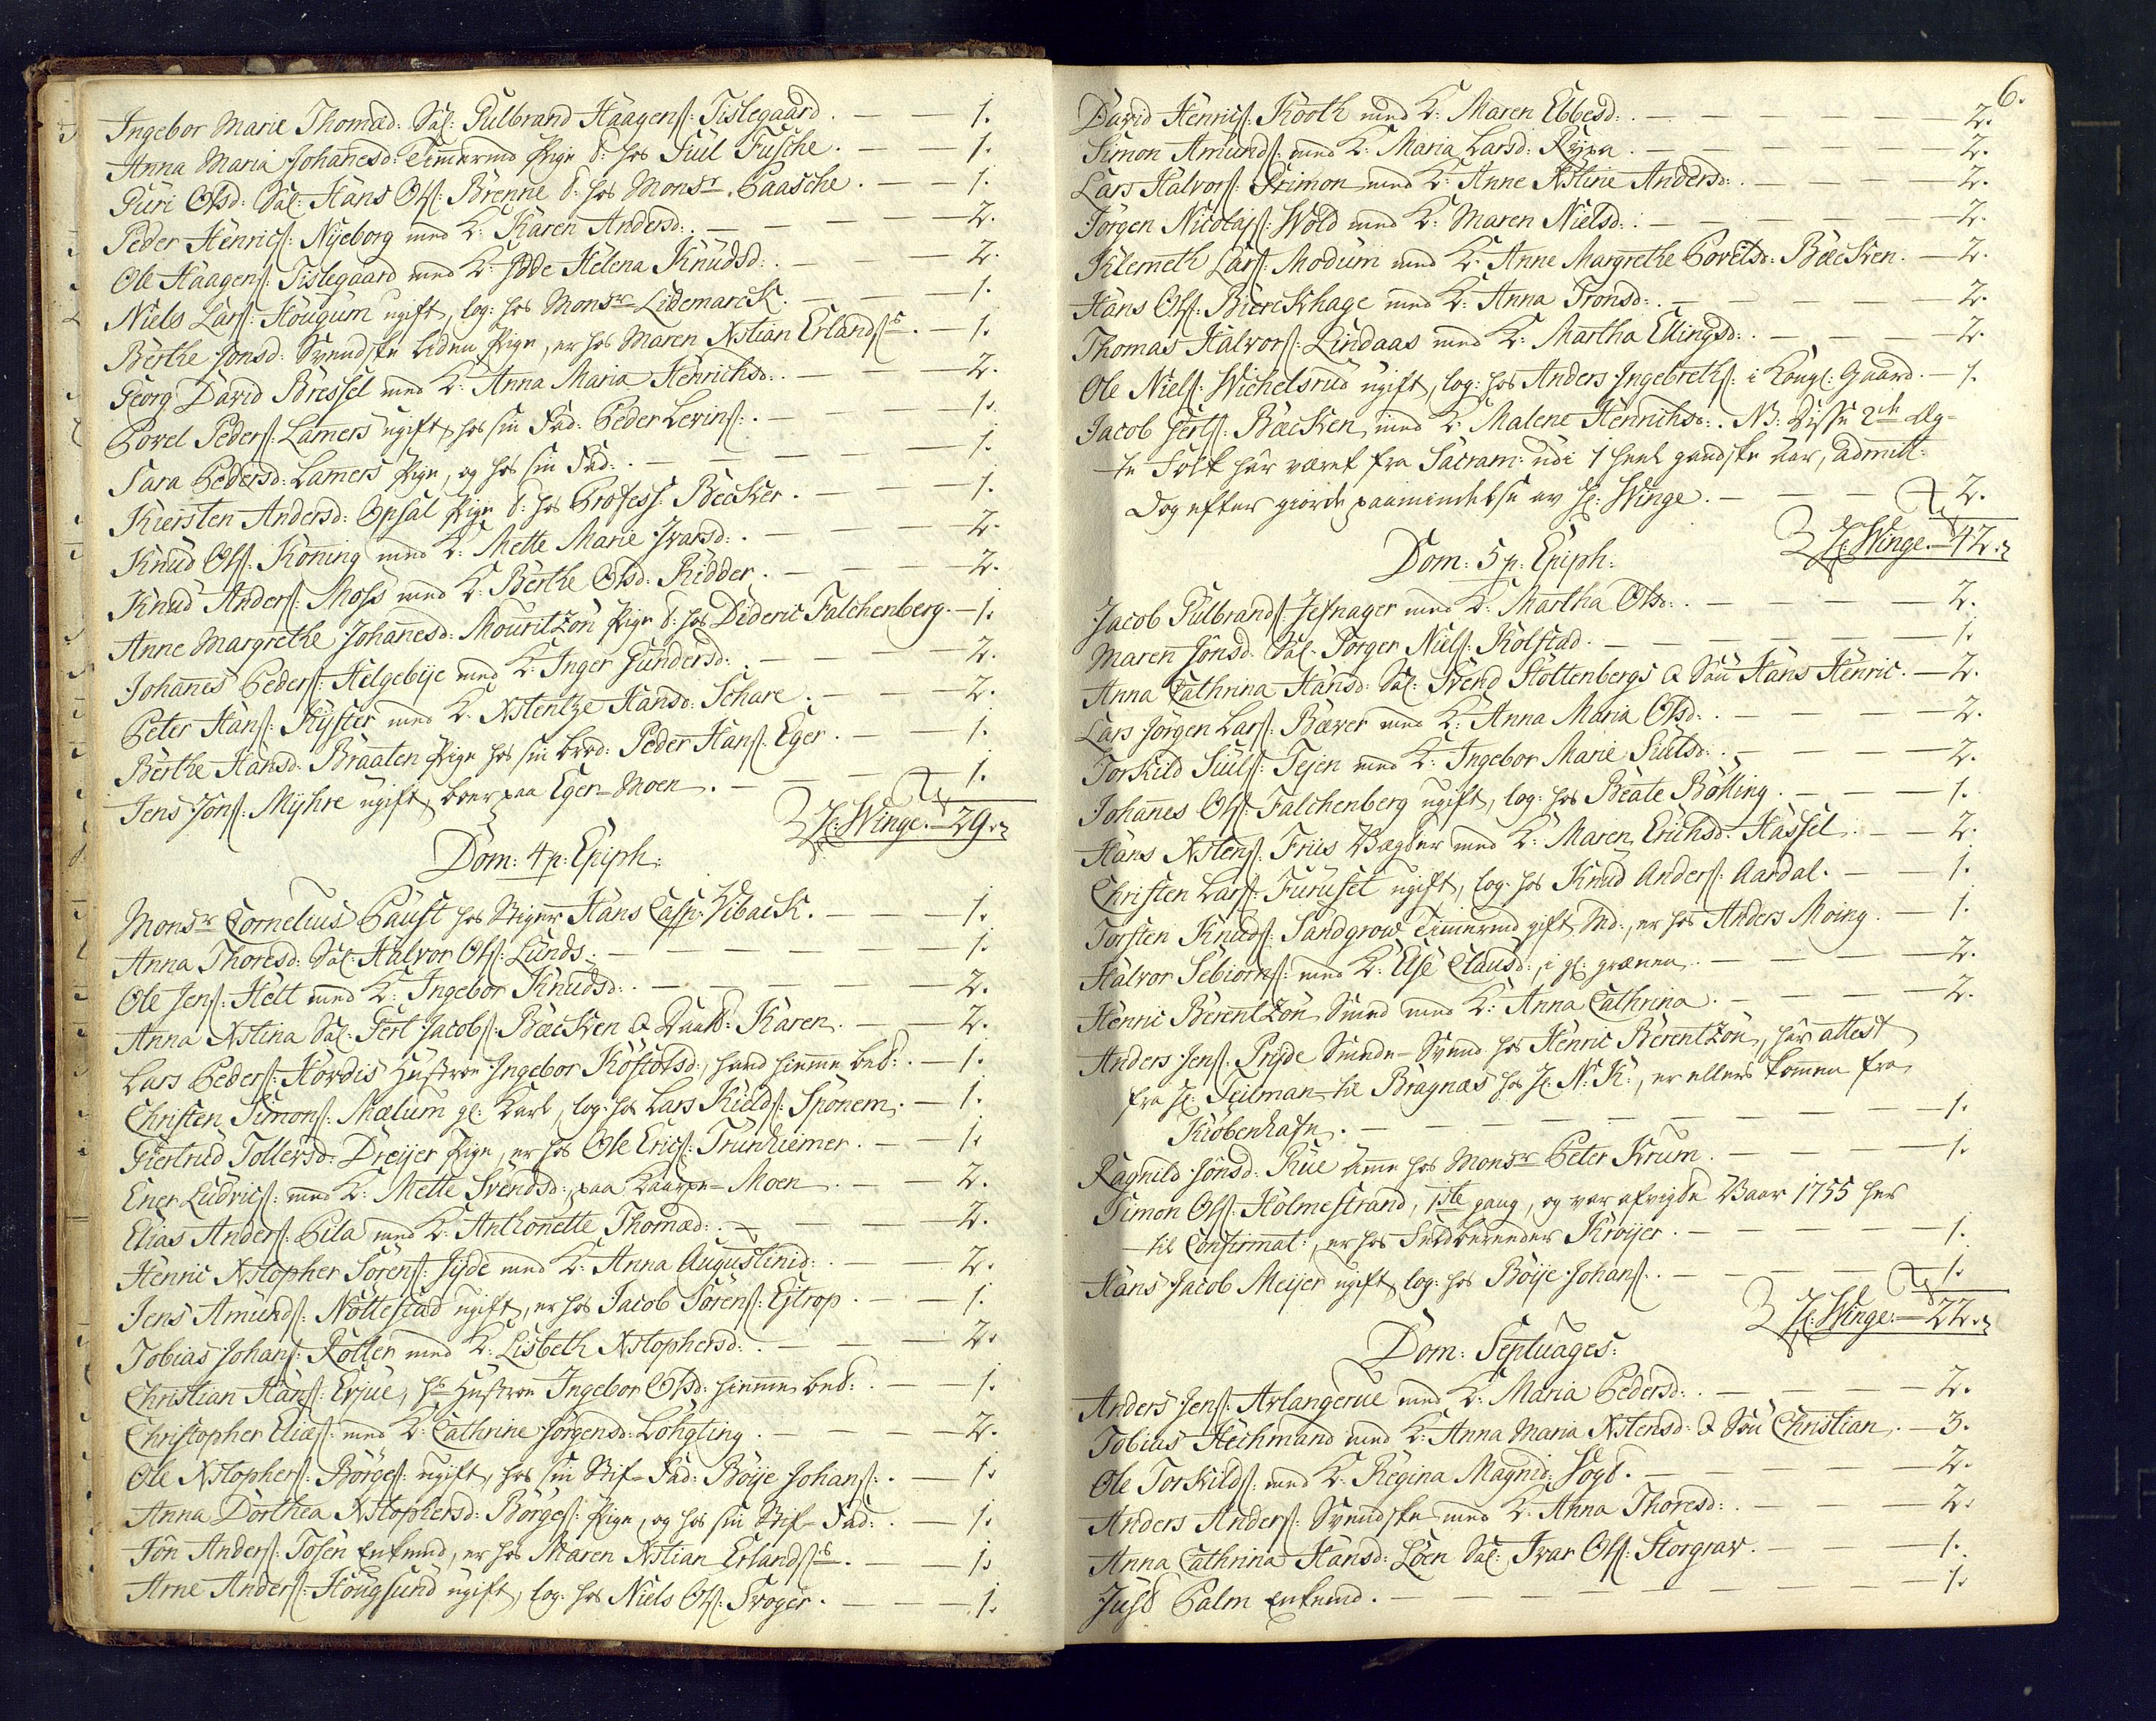 Ingebor Marie Thomæd: Sal: Gulbrand Haagens: Tislegaard. — — 1.
Anna Maria Johannesd: Timermd Pige d: hos Juil Fusche. — — 1.
Guri Olsd: Sal: Hans Ols: Brenne d: hos Monsr. Paasche. — — 1.
Peder Henrics: Nyeborg med K: Karen Andersd: . — — — 2.
Ole Haagens: Tislegaard med K: Idde Helena Knudsd: . — — 2.
Niels Lars: Hougum ugift, log: hos Monsr Lidemarck. — — 1.
Berthe Jonsd: Svendske liden Pige, er hos Maren Xstian Erlands:s. — 1.
Georg David Bressel med K: Anna Maria Henrichsd: . — — 2.
Povel Peders: Lamers ugift, hos sin Fad: Peder Levins: . — — 1.
Sara Pedersd: Lamers Pige, og hos sin Fad: . — — — 1.
Kiersten Andersd: Opsal Pige d: hos Profess: Becker. — — 1.
Knud Ols: Koning med K: Mette Marie Ivarsd: . — — — 2.
Knud Anders: Moss med K: Berthe Olsd: Ridder. — — — 2.
Anne Margrethe Johannesd: Mouritzon Pige d: hos Dideric Falchenberg. — 1.
Johannes Peders: Helgebye med K: Inger Gundersd: . — — 2.
Peter Hans: Hyster med K: Xstentze Hansd: Schare. — — 2.
Berthe Hansd: Braaten Pige hos sin brod: Peder Hans: Eger. — — 1.
Jens Jons: Myhre ugift, boer paa Eger-Moen. — — — 1.
H: Winge. — 29.
Dom: 4 p: Epiph:
Monsr Cornelius Paust hos Stiger Hans Casp: Vibaek. — — 1.
Anna Thoresd: Sal: Halvor Ols: Lunds. — — — 1.
Ole Jens: Helt med K: Ingebor Knudsd: . — — — 2.
Anna Xstina Sal: Gert Jacobs: Bæcken & Daatt: Karen. — — 2.
Lars Peders: Hordis Hustroe Ingebor Kostolsd:, hand hiemme bed: . — 1.
Christen Simons: Mælum gl: Karl, log: hos Lars Kields: Sponem. — 1.
Giertrud Tollevsd: Dreyer Pige, er hos Ole Erics: Trunhiemer. — — 1.
Ener Ludvics: med K: Mette Svendsd: paa Kaarpe-Moen. — — 2.
Elias Anders: Pila med K: Anthonette Thomæd: . — — 2.
Henric Xstopher Sorens: Jyde med K: Anna Augustinid: . — — 2.
Jens Amunds: Nottestad ugift, er hos Jacob Sorens: Ejtrop. — — 1.
Tobias Johans: Rotter med K: Lisbeth Xstophersd: . — — 2.
Christian Hans: Erjue, hs Hustroe Ingebor Olsd: hiemme bed: . — — 1.
Christopher Eliæs: med K: Cathrine Jorgensd: Lohgting. — — — 2.
Ole Xstophers: Börges: ugift, hos sin Stif-Fad: Böije Johans: . — 1.
Anna Dorthea Xstophersd: Börges: Pige, og hos sin Stif-Fad: . — 1.
Jon Anders: Tosen Enkemd, er hos Maren Xstian Erlands:s. — — 1.
Arne Anders: Hougsund ugift, log: hos Niels Ols: Troger. — — 1.
6.
David Henrics: Kooth med K: Maren Ebbesd: . — — — 2.
Simon Amunds: med K: Maria Larsd: Rypa. — — — 2.
Lars Halvors: Primon med K: Anne Xstine Andersd: . — — 2.
Jorgen Nicolajs: Wold med K: Maren Nielsd: . — — — 2.
Klemeth Lars: Modum med K: Anne Margrethe Povelsd: Bæcken. — 2.
Hans Ols: Bierckhage med K: Anna Tronsd: . — — — 2.
Thomas Halvors: Lindaas med K: Martha Ellingsd: . — — — 2.
Ole Niels: Wichelsrud ugift, log: hos Anders Ingebreths: i Kongs: Gaard. — 1.
Jacob Gerts: Bæcken, med K: Malene Henrichsd: . NB: Disse 2de Æg-
te Folk har været fra Sacram: udi 1 heel gandske Aar, admitt:
dog efter giorde paamindelse av H: Winge. — — — 2.
H: Winge. — 42.
Dom: 5 p: Epiph:
Jacob Gulbrands: Jefnager med K: Martha Olsd: . — — — 2.
Maren Jonsd: Sal: Torger Niels: Kolstad. — — — 1.
Anna Cathrina Hansd: Sal: Svend Stottenbergs & Søn Hans Henric. — 2.
Lars Jorgen Lars: Bæver med K: Anna Maria Olsd: . — — 2.
Torkild Siuls: Tejen med K: Ingebor Marie Siulsd: . — — 2.
Johannes Ols: Falchenberg ugift, log: hos Beate Bolling. — — 1.
Hans Xstens: Friis Vægter med K: Maren Erichsd: Hassel. — — 2.
Christen Lars: Furuset ugift, log: hos Knud Anders: Aardal. — — 1.
Torsten Knuds: Sandgrow Timermd gift Md:, er hos Anders Moing. — 1.
Halvor Sebiorns: med K: Else Clausd: i gl: grænen. — — — 2.
Henric Berentzon Smed med K: Anna Cathrina. — — — 2.
Anders Jens: Pryde Smede-Svend hos Henric Berentzon, har attest
fra H: Teilman til Bragnæs hos H: N: K:, er ellers komen fra
Kiobenhafn. — — — — — 1.
Ragnild Jonsd: Rue Amme hos Monsr Peter Krum. — — — 1.
Simon Ols: Holmestrand, 1ste gang, og var afvigte Vaar 1755 her
til Confirmat:, er hos Kroijer. — — — 1.
Hans Jacob Meijer ugift, log: hos Böije Johans: . — — — 1.
H: Winge. — 22.
Dom: Septuages:
Anders Jens: Arlangerue med K: Maria Pedersd: . — — — 2.
Tobias Hechmand med K: Anna Maria Xstensd: & Søn Christian. — 3.
Ole Torkilds: med K: Regina Magnid: Fogt. — — — 2.
Anders Anders: Svendske med K: Anna Thoresd: . — — — 2.
Anna Cathrina Hansd: Löen Sal: Ivar Ols: Storgrav. — — 1.
Just Palm Enkemd. — — — — 1.